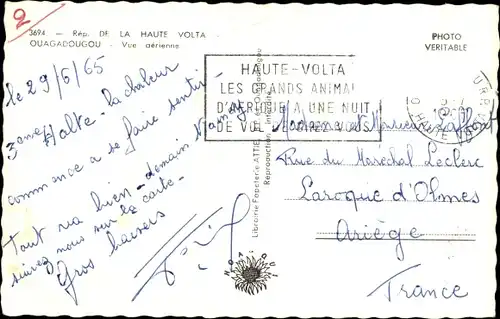 2
3694 - Rép. DE LA HAUTE VOLTA
OUAGADOUGOU - Vue aérienne
PHOTO
VERITABLE
HAUTE-VOLTA
LES GRANDS ANIMAUX
D'AFRIQUE A UNE NUIT
DE VOL DE CHEZ VOUS
le 29/6/65
3ème Halte - la chaleur
commence a se faire sentir -
Tout va bien - demain Niamey
suivez nous sur la carte -
Gros baisers
Librairie Papeterie ATTIE
Reproduction interdite
Madame et Monsieur
Rue du Maréchal Leclerc
Laroque d'Olmes
Ariège
France